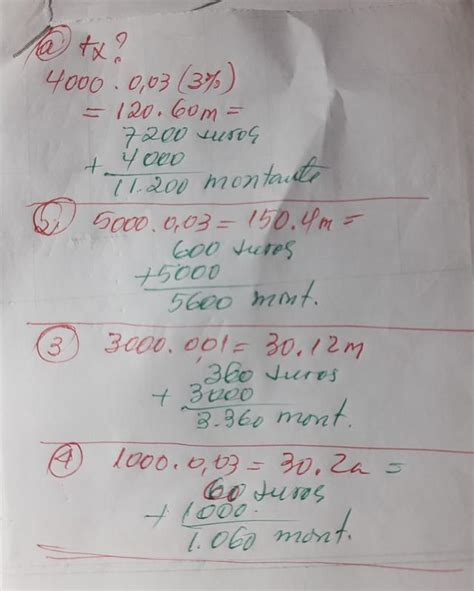 a) tx?
4000 . 0,03 (3%)
= 120 . 60m =
7200 juros
+ 4000
11.200 montante
2) 5000 . 0,03 = 150 . 4m =
600 juros
+ 5000
5600 mont.
3 3000 . 0,01 = 30 . 12m
360 juros
+ 3000
3.360 mont.
4 1000 . 0,03 = 30 . 2a =
60 juros
+ 1000.
1.060 mont.